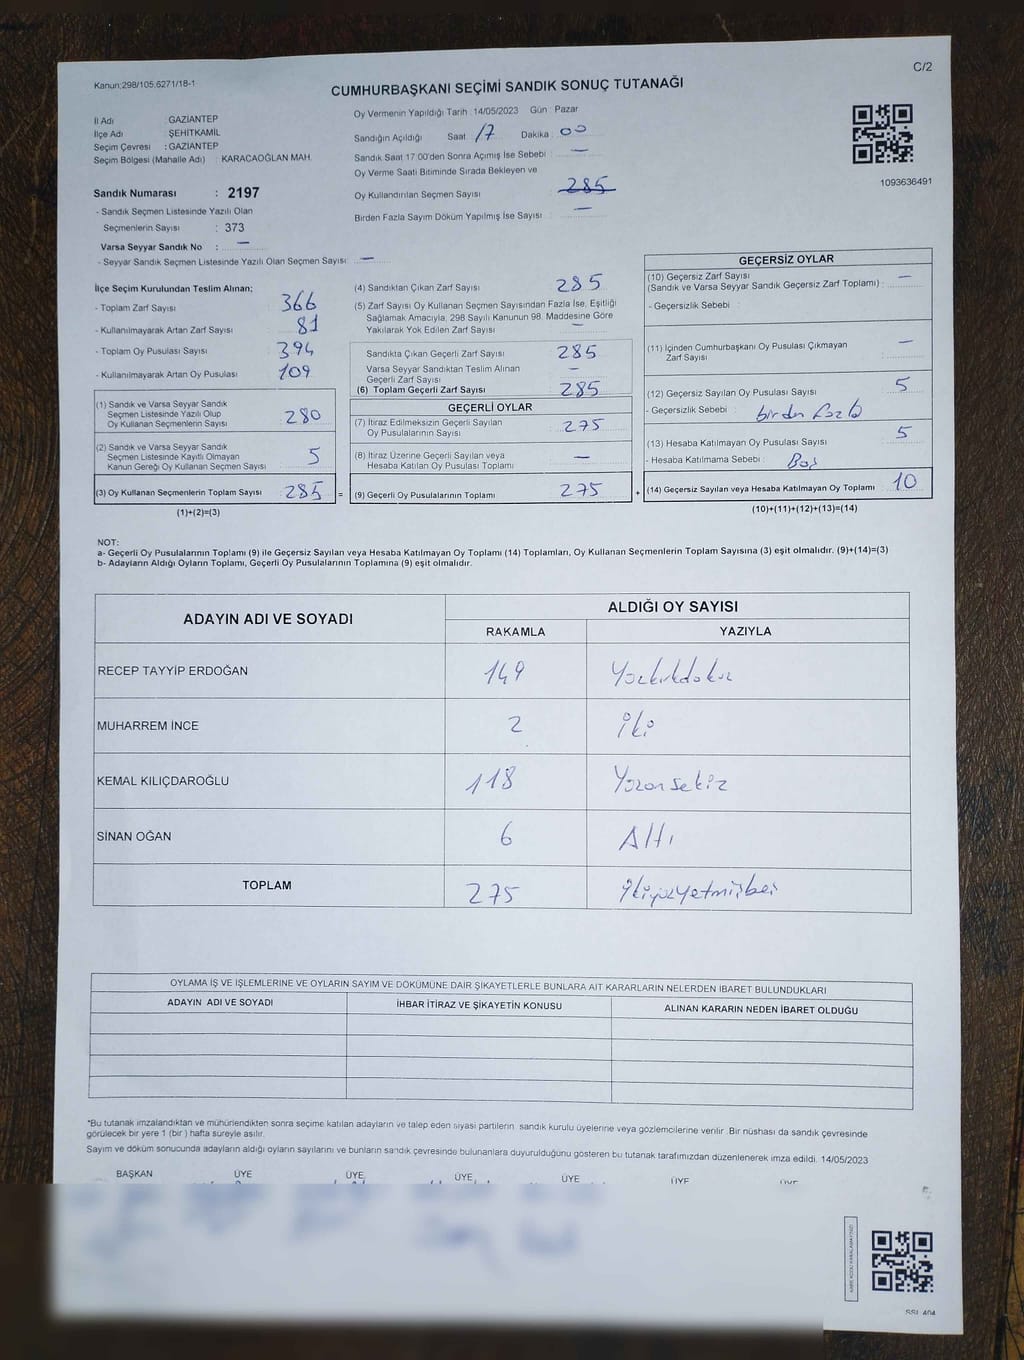 C/2
Kanun:298/105.6271/18-1
CUMHURBAŞKANI SEÇİMİ SANDIK SONUÇ TUTANAĞI
İl Adı : GAZİANTEP
İlçe Adı : ŞEHİTKAMİL
Seçim Çevresi : GAZİANTEP
Seçim Bölgesi (Mahalle Adı) : KARACAOĞLAN MAH.
Sandık Numarası : 2197
- Sandık Seçmen Listesinde Yazılı Olan
Seçmenlerin Sayısı : 373
Varsa Seyyar Sandık No : —
- Seyyar Sandık Seçmen Listesinde Yazılı Olan Seçmen Sayısı : —
Oy Vermenin Yapıldığı Tarih : 14/05/2023 Gün : Pazar
Sandığın Açıldığı Saat : 17 Dakika : 00
Sandık Saat 17:00'den Sonra Açımış İse Sebebi : —
Oy Verme Saati Bitiminde Sırada Bekleyen ve
Oy Kullandırılan Seçmen Sayısı : 285
Birden Fazla Sayım Döküm Yapılmış İse Sayısı : —
1093636491
İlçe Seçim Kurulundan Teslim Alınan;
- Toplam Zarf Sayısı : 366
- Kullanılmayarak Artan Zarf Sayısı : 81
- Toplam Oy Pusulası Sayısı : 394
- Kullanılmayarak Artan Oy Pusulası : 109
(1) Sandık ve Varsa Seyyar Sandık
Seçmen Listesinde Yazılı Olup
Oy Kullanan Seçmenlerin Sayısı : 280
(2) Sandık ve Varsa Seyyar Sandık
Seçmen Listesinde Kayıtlı Olmayan
Kanun Gereği Oy Kullanan Seçmen Sayısı : 5
(3) Oy Kullanan Seçmenlerin Toplam Sayısı : 285 =
(1)+(2)=(3)
(4) Sandıktan Çıkan Zarf Sayısı : 285
(5) Zarf Sayısı Oy Kullanan Seçmen Sayısından Fazla İse, Eşitliği
Sağlamak Amacıyla, 298 Sayılı Kanunun 98. Maddesine Göre
Yakılarak Yok Edilen Zarf Sayısı : —
Sandıkta Çıkan Geçerli Zarf Sayısı : 285
Varsa Seyyar Sandıktan Teslim Alınan
Geçerli Zarf Sayısı : —
(6) Toplam Geçerli Zarf Sayısı : 285
GEÇERLİ OYLAR
(7) İtiraz Edilmeksizin Geçerli Sayılan
Oy Pusulalarının Sayısı : 275
(8) İtiraz Üzerine Geçerli Sayılan veya
Hesaba Katılan Oy Pusulası Toplamı : —
(9) Geçerli Oy Pusulalarının Toplamı : 275 +
GEÇERSİZ OYLAR
(10) Geçersiz Zarf Sayısı —
(Sandık ve Varsa Seyyar Sandık Geçersiz Zarf Toplamı) :
- Geçersizlik Sebebi :
(11) İçinden Cumhurbaşkanı Oy Pusulası Çıkmayan —
Zarf Sayısı
(12) Geçersiz Sayılan Oy Pusulası Sayısı : 5
- Geçersizlik Sebebi : birden fazla
(13) Hesaba Katılmayan Oy Pusulası Sayısı : 5
- Hesaba Katılmama Sebebi : Boş
(14) Geçersiz Sayılan veya Hesaba Katılmayan Oy Toplamı : 10
(10)+(11)+(12)+(13)=(14)
NOT:
a- Geçerli Oy Pusulalarının Toplamı (9) ile Geçersiz Sayılan veya Hesaba Katılmayan Oy Toplamı (14) Toplamları, Oy Kullanan Seçmenlerin Toplam Sayısına (3) eşit olmalıdır. (9)+(14)=(3)
b- Adayların Aldığı Oyların Toplamı, Geçerli Oy Pusulalarının Toplamına (9) eşit olmalıdır.
ADAYIN ADI VE SOYADI
ALDIĞI OY SAYISI
RAKAMLA YAZIYLA
RECEP TAYYİP ERDOĞAN 149 Yüzkırkdokuz
MUHARREM İNCE 2 iki
KEMAL KILIÇDAROĞLU 118 Yüzonsekiz
SİNAN OĞAN 6 Altı
TOPLAM 275 ikiyüzyetmişbeş
OYLAMA İŞ VE İŞLEMLERİNE VE OYLARIN SAYIM VE DÖKÜMÜNE DAİR ŞİKAYETLERLE BUNLARA AİT KARARLARIN NELERDEN İBARET BULUNDUKLARI
ADAYIN ADI VE SOYADI İHBAR İTİRAZ VE ŞİKAYETİN KONUSU ALINAN KARARIN NEDEN İBARET OLDUĞU
*Bu tutanak imzalandıktan ve mühürlendikten sonra seçime katılan adayların ve talep eden siyasi partilerin sandık kurulu üyelerine veya gözlemcilerine verilir. Bir nüshası da sandık çevresinde
görülecek bir yere 1 (bir) hafta süreyle asılır.
Sayım ve döküm sonucunda adayların aldığı oyların sayılarını ve bunların sandık çevresinde bulunanlara duyurulduğunu gösteren bu tutanak tarafımızdan düzenlenerek imza edildi. 14/05/2023
BAŞKAN ÜYE ÜYE ÜYE ÜYE ÜYE ÜYE